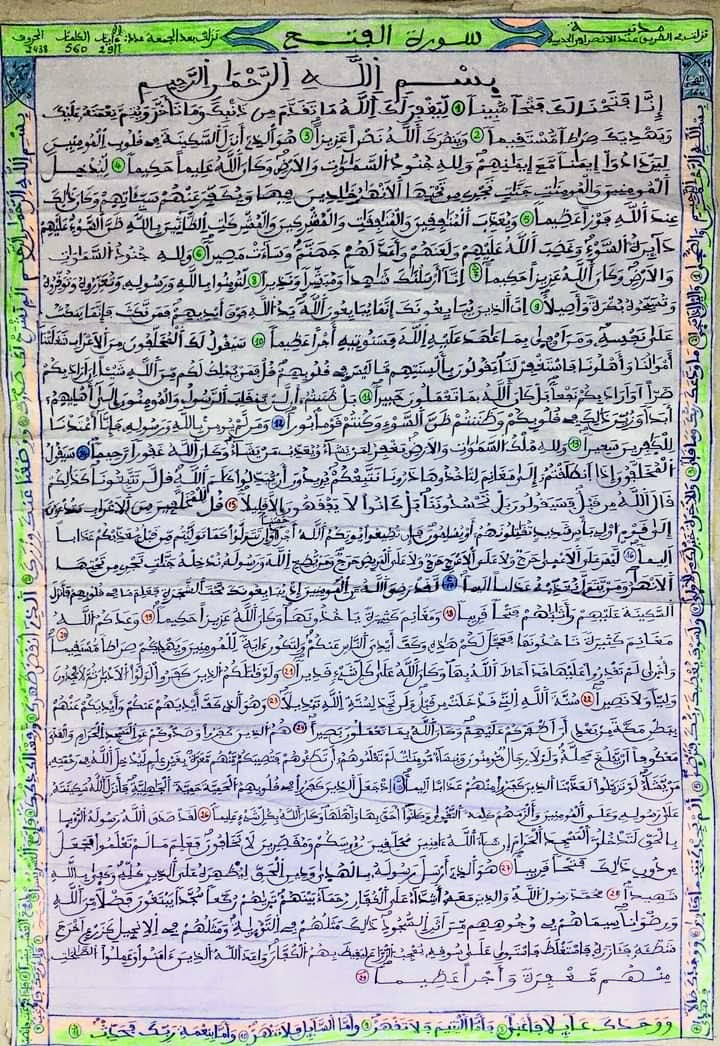 مدنية نزلت في الطريق عند الانصراف من الحديبية
سورة الفتح
نزلت بعد الجمعة عدد: آياتها 29 الكلمات 560 الحروف 2438
بسم الله الرحمن الرحيم
إنا فتحنا لك فتحا مبينا 1 ليغفر لك الله ما تقدم من ذنبك وما تأخر ويتم نعمته عليك
ويهديك صراطا مستقيما 2 وينصرك الله نصرا عزيزا 3 هو الذي أنزل السكينة في قلوب المومنين
ليزدادوا إيمانا مع إيمانهم ولله جنود السماوات والارض وكان الله عليما حكيما 4 ليدخل
المومنين والمومنات جنات تجري من تحتها الانهار خالدين فيها ويكفر عنهم سيئاتهم وكان ذلك
عند الله فوزا عظيما 5 ويعذب المنافقين والمنافقات والمشركين والمشركات الظانين بالله ظن السوء عليهم
دائرة السوء وغضب الله عليهم ولعنهم وأعد لهم جهنم وساءت مصيرا 6 ولله جنود السماوات
والارض وكان الله عزيزا حكيما 7 إنا أرسلناك شاهدا ومبشرا ونذيرا 8 لتومنوا بالله ورسوله وتعزروه وتوقروه
وتسبحوه بكرة وأصيلا 9 إن الذين يبايعونك إنما يبايعون الله يد الله فوق أيديهم فمن نكث فإنما ينكث
على نفسه ومن أوفى بما عاهد عليه الله فسنوتيه أجرا عظيما 10 سيقول لك المخلفون من الاعراب شغلتنا
أموالنا وأهلونا فاستغفر لنا يقولون بألسنتهم ما ليس في قلوبهم قل فمن يملك لكم من الله شيئا إن اراد بكم
ضرا او اراد بكم نفعا بل كان الله بما تعملون خبيرا 11 بل ظننتم أن لن ينقلب الرسول والمومنون إلى أهليهم
أبدا وزين ذلك في قلوبكم وظننتم ظن السوء وكنتم قوما بورا 12 ومن لم يومن بالله ورسوله فإنا أعتدنا
للكافرين سعيرا 13 ولله ملك السماوات والارض يغفر لمن يشاء ويعذب من يشاء وكان الله غفورا رحيما 14 سيقول
المخلفون إذا انطلقتم إلى مغانم لتاخذوها ذرونا نتبعكم يريدون أن يبدلوا كلام الله قل لن تتبعونا كذلكم
قال الله من قبل فسيقولون بل تحسدوننا بل كانوا لا يفقهون إلا قليلا 15 قل للمخلفين من الاعراب ستدعون
إلى قوم اولي بأس شديد تقاتلونهم أو يسلمون فإن تطيعوا يوتكم الله أجرا حسنا وإن تتولوا كما توليتم من قبل يعذبكم عذابا
أليما 16 ليس على الاعمى حرج ولا على الاعرج حرج ولا على المريض حرج ومن يطع الله ورسوله ندخله جنات تجري من تحتها
الانهار ومن يتول نعذبه عذابا اليما 17 لقد رضي الله عن المومنين إذ يبايعونك تحت الشجرة فعلم ما في قلوبهم فأنزل
السكينة عليهم وأثابهم فتحا قريبا 18 ومغانم كثيرة ياخذونها وكان الله عزيزا حكيما 19 وعدكم الله
مغانم كثيرة تاخذونها فعجل لكم هذه وكف أيدي الناس عنكم ولتكون ءاية للمومنين ويهديكم صراطا مستقيما 20
وأخرى لم تقدروا عليها قد احاط الله بها وكان الله على كل شيء قديرا 21 ولو قاتلكم الذين كفروا لولوا الادبار ثم لا يجدون
وليا ولا نصيرا 22 سنة الله التي قد خلت من قبل ولن تجد لسنة الله تبديلا 23 وهو الذي كف أيديهم عنكم وأيديكم عنهم
ببطن مكة من بعد أن أظفركم عليهم وكان الله بما تعملون بصيرا 24 هم الذين كفروا وصدوكم عن المسجد الحرام والهدي
معكوفا أن يبلغ محله ولولا رجال مومنون ونساء مومنات لم تعلموهم أن تطئوهم فتصيبكم منهم معرة بغير علم ليدخل الله في رحمته
من يشاء لو تزيلوا لعذبنا الذين كفروا منهم عذابا اليما 25 إذ جعل الذين كفروا في قلوبهم الحمية حمية الجاهلية فأنزل الله سكينته
على رسوله وعلى المومنين وألزمهم كلمة التقوى وكانوا أحق بها وأهلها وكان الله بكل شيء عليما 26 لقد صدق الله رسوله الرءيا
بالحق لتدخلن المسجد الحرام إن شاء الله ءامنين محلقين رءوسكم ومقصرين لا تخافون فعلم ما لم تعلموا فجعل
من دون ذلك فتحا قريبا 27 هو الذي أرسل رسوله بالهدى ودين الحق ليظهره على الدين كله وكفى بالله
شهيدا 28 محمد رسول الله والذين معه أشداء على الكفار رحماء بينهم تراهم ركعا سجدا يبتغون فضلا من الله
ورضوانا سيماهم في وجوههم من أثر السجود ذلك مثلهم في التوراة ومثلهم في الانجيل كزرع اخرج
شطئه فئازره فاستغلظ فاستوى على سوقه يعجب الزراع ليغيظ بهم الكفار وعد الله الذين ءامنوا وعملوا الصالحات
منهم مغفرة وأجرا عظيما 29
بسم الله الرحمن الرحيم والضحى والليل إذا سجى ما ودعك ربك وما قلى وللآخرة خير لك من الاولى ولسوف يعطيك ربك فترضى ألم يجدك يتيما فئاوى ووجدك ضالا فهدى
ووجدك عايلا فأغنى فأما اليتيم فلا تقهر وأما السايل فلا تنهر وأما بنعمة ربك فحدث
بسم الله الرحمن الرحيم ألم نشرح لك صدرك ووضعنا عنك وزرك الذي أنقض ظهرك ورفعنا لك ذكرك فإن مع العسر يسرا